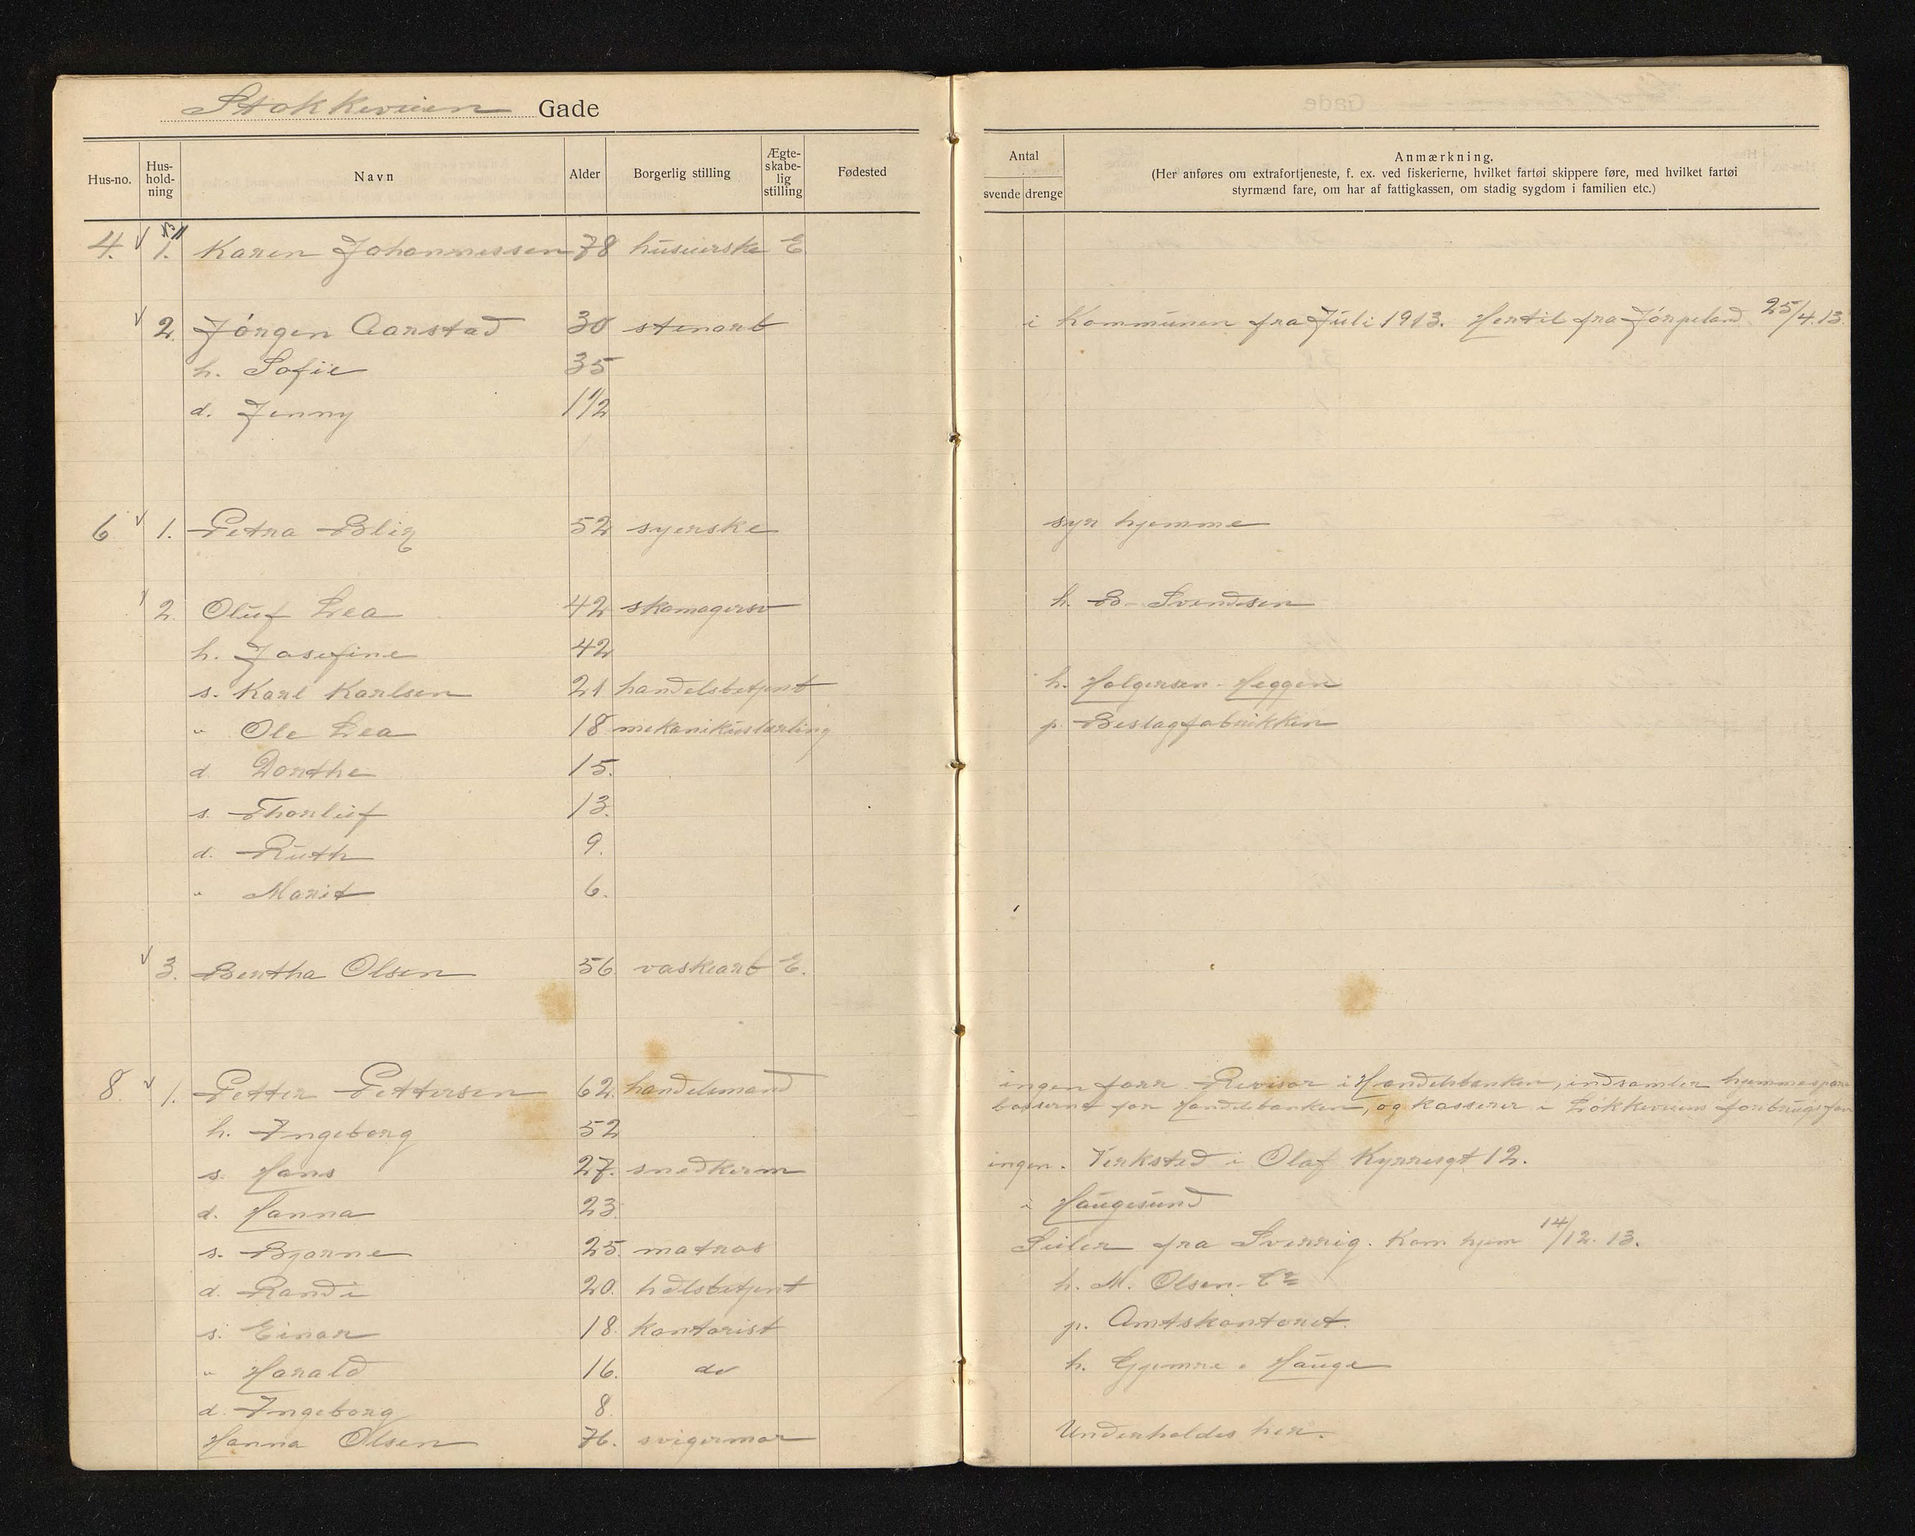 Stokkeveien Gade
Hus-no. Hus-hold-ning Navn Alder Borgerlig stilling Ægte-skabe-lig stilling Fødested
Antal svende drenge Anmærkning.
(Her anføres om extrafortjeneste, f. ex. ved fiskerierne, hvilket fartøi skippere føre, med hvilket fartøi
styrmænd fare, om har af fattigkassen, om stadig sygdom i familien etc.)
4. 1. Karen Johannessen 78 huseierske E.
2. Jörgen Aarstad 30 stenarb i Kommunen fra Juli 1913. Hertil fra Jörpeland 25/4.13.
h. Sofie 35
d. Jenny 1 1/2
6 1. Petra Blix 52 syerske syr hjemme
2. Oluf Lea 42 skomagersv h. B. Svendsen
h. Josefine 42
s. Karl Karlsen 21 handelsbetjent h. Holgersen-Heggen
" Ole Lea 18 mekanikuslærling p. Beslagfabrikken
d. Dorthe 15.
s. Thorleif 13.
d. Ruth 9.
" Marit 6.
3. Bertha Olsen 56 vaskearb E.
8. 1. Petter Pettersen 62. handelsmand ingen forr. Revisor i Handelsbanken, indsamler hjemmespare
bøssernt for Handelsbanken, og kasserer i Lökkeveiens forbrugsfor
h. Ingeborg 52
s. Hans 27. snedkerm ingen. Verksted i Olaf Kyrresgt 12.
d. Hanna 23. i Haugesund
s. Bjarne 25. matros Seiler fra Sverrig. Kom hjem 14/12. 13.
d. Randi 20. hdlsbetjent h. M. Olsen. Co
s. Einar 18. kontorist p. Amtskontoret.
" Harald 16. do h. Gjemre & Hauge
d. Ingeborg 8.
Hanna Olsen 76. svigermor Underholdes her.